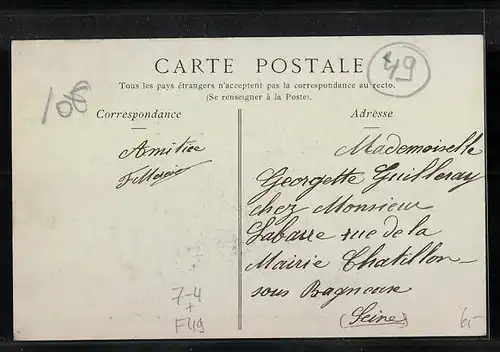 CARTE POSTALE
49
Tous les pays étrangers n'acceptent pas la correspondance au recto.
(Se renseigner à la Poste).
108
Correspondance
Adresse
Amitiee
Mademoiselle
Georgette Guilleray
chez Monsieur
Labarre rue de la
Mairie Chatillon-
sous Bagneux
(Seine)
7-4
+
F49
6-